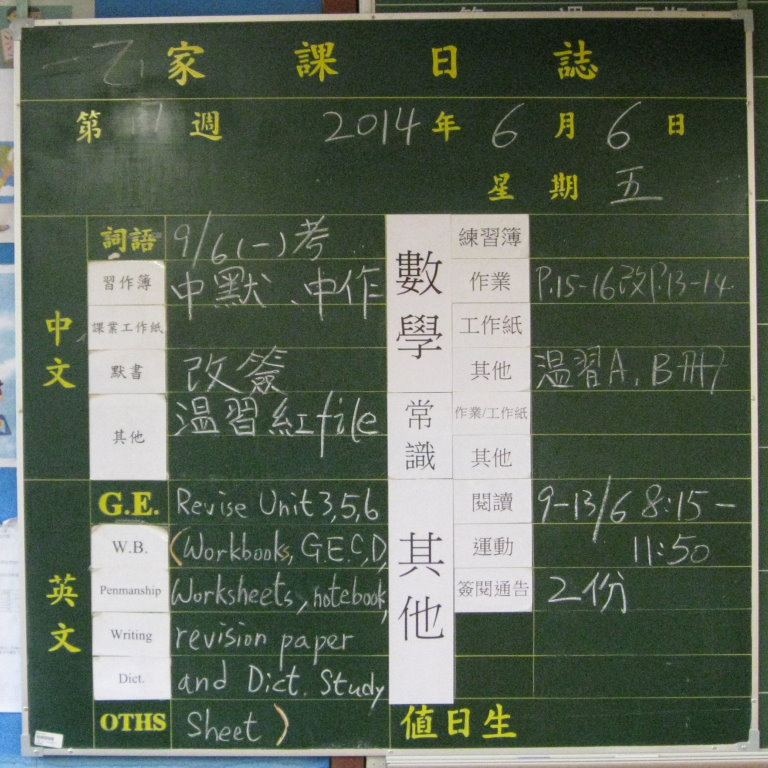 一乙 家 課 日 誌
第 17 週 2014 年 6 月 6 日
星 期 五
中文
詞語 9/6(一)考
習作簿 中默、中作
課業工作紙
默書 改簽
其他 温習紅file
英文
G.E. Revise Unit 3,5,6
W.B. (Workbooks, G.E.C,D,
Penmanship Worksheets, notebook,
Writing revision paper
Dict. and Dict. Study
OTHS Sheet)
數學
練習簿
作業 P.15-16改P.13-14
工作紙
其他 温習A, B冊
常識
作業/工作紙
其他
其他
閱讀 9-13/6 8:15-
運動 11:50
簽閱通告 2份
值日生